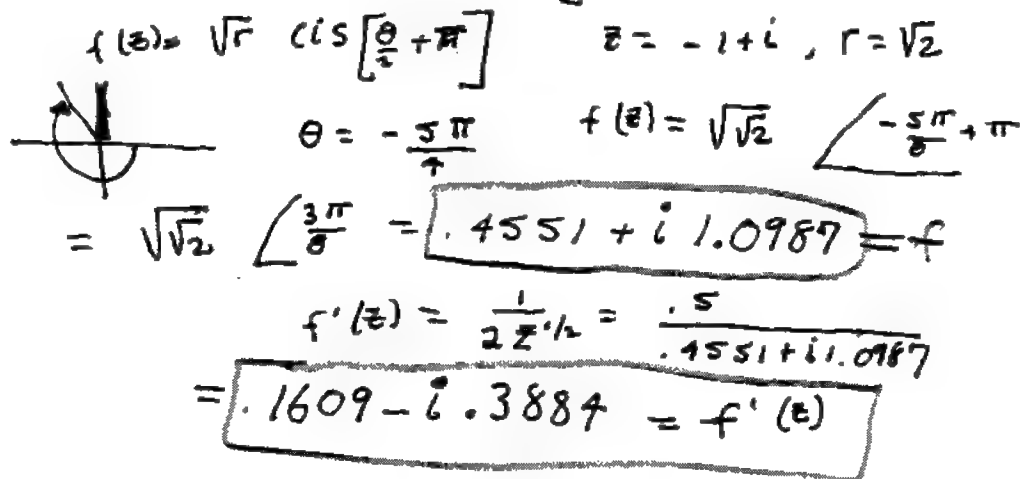 f(z) = √r cis[θ/2 + π] z = -1+i , r = √2
θ = -5π/4 f(z) = √√2 ∠-5π/8 + π
= √√2 ∠3π/8 = .4551 + i 1.0987 = f
f'(z) = 1/(2 z^1/2) = .5/(.4551 + i 1.0987)
= .1609 - i .3884 = f'(z)